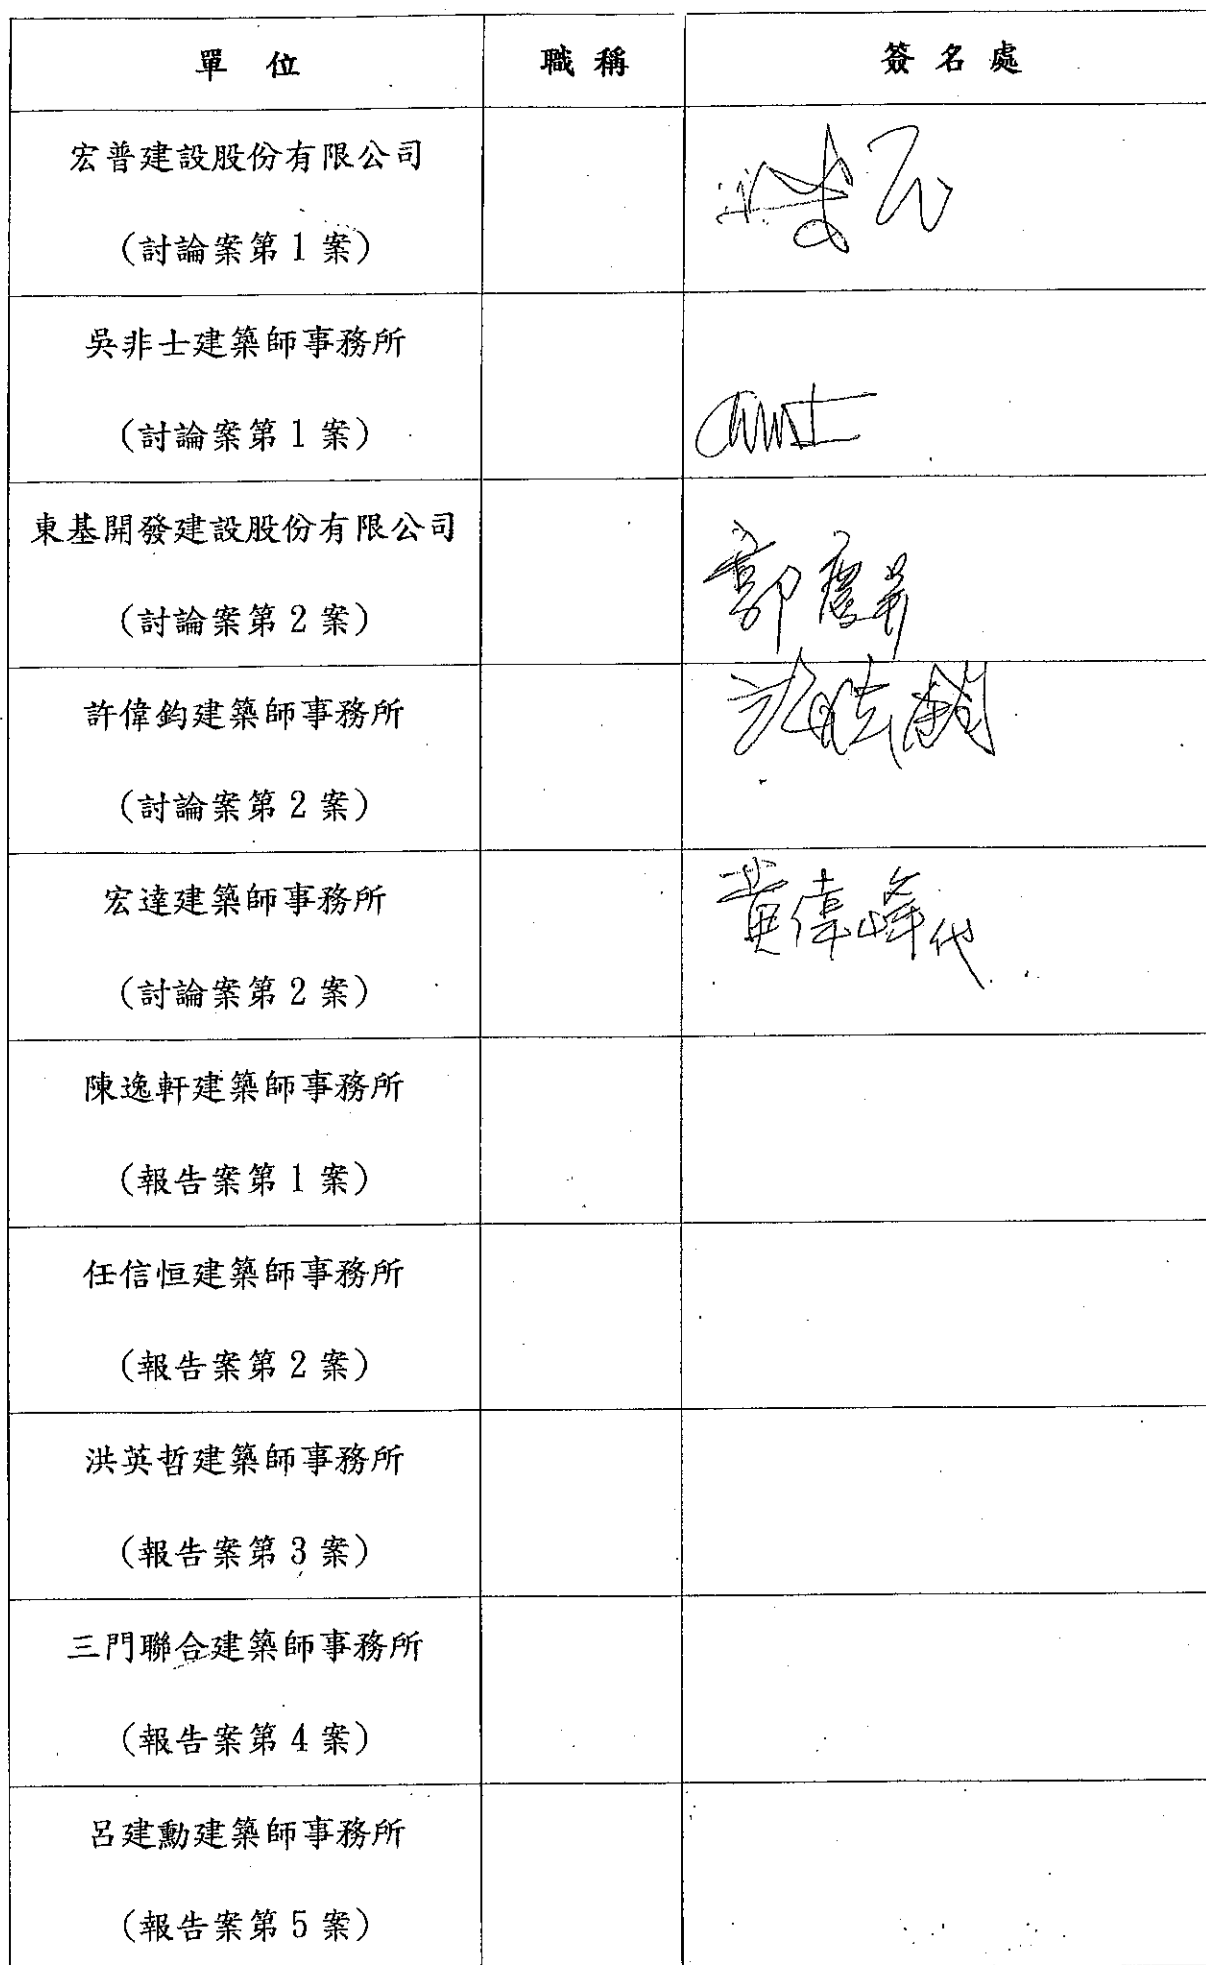 單 位 職 稱 簽 名 處
宏普建設股份有限公司
(討論案第 1 案)
吳非士建築師事務所
(討論案第 1 案)
東基開發建設股份有限公司
(討論案第 2 案)
郭慶
許偉鈞建築師事務所
(討論案第 2 案)
宏達建築師事務所
黃偉峰代
(討論案第 2 案)
陳逸軒建築師事務所
(報告案第 1 案)
任信恒建築師事務所
(報告案第 2 案)
洪英哲建築師事務所
(報告案第 3 案)
三門聯合建築師事務所
(報告案第 4 案)
呂建勳建築師事務所
(報告案第 5 案)